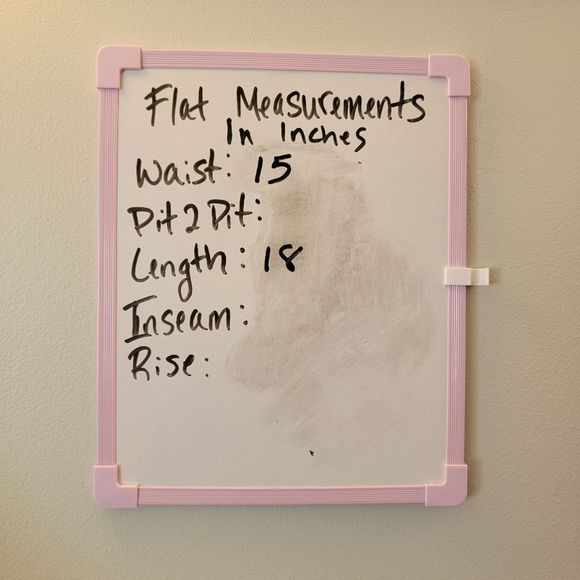 Flat Measurements
In Inches
Waist: 15
Pit 2 Pit:
Length: 18
Inseam:
Rise: